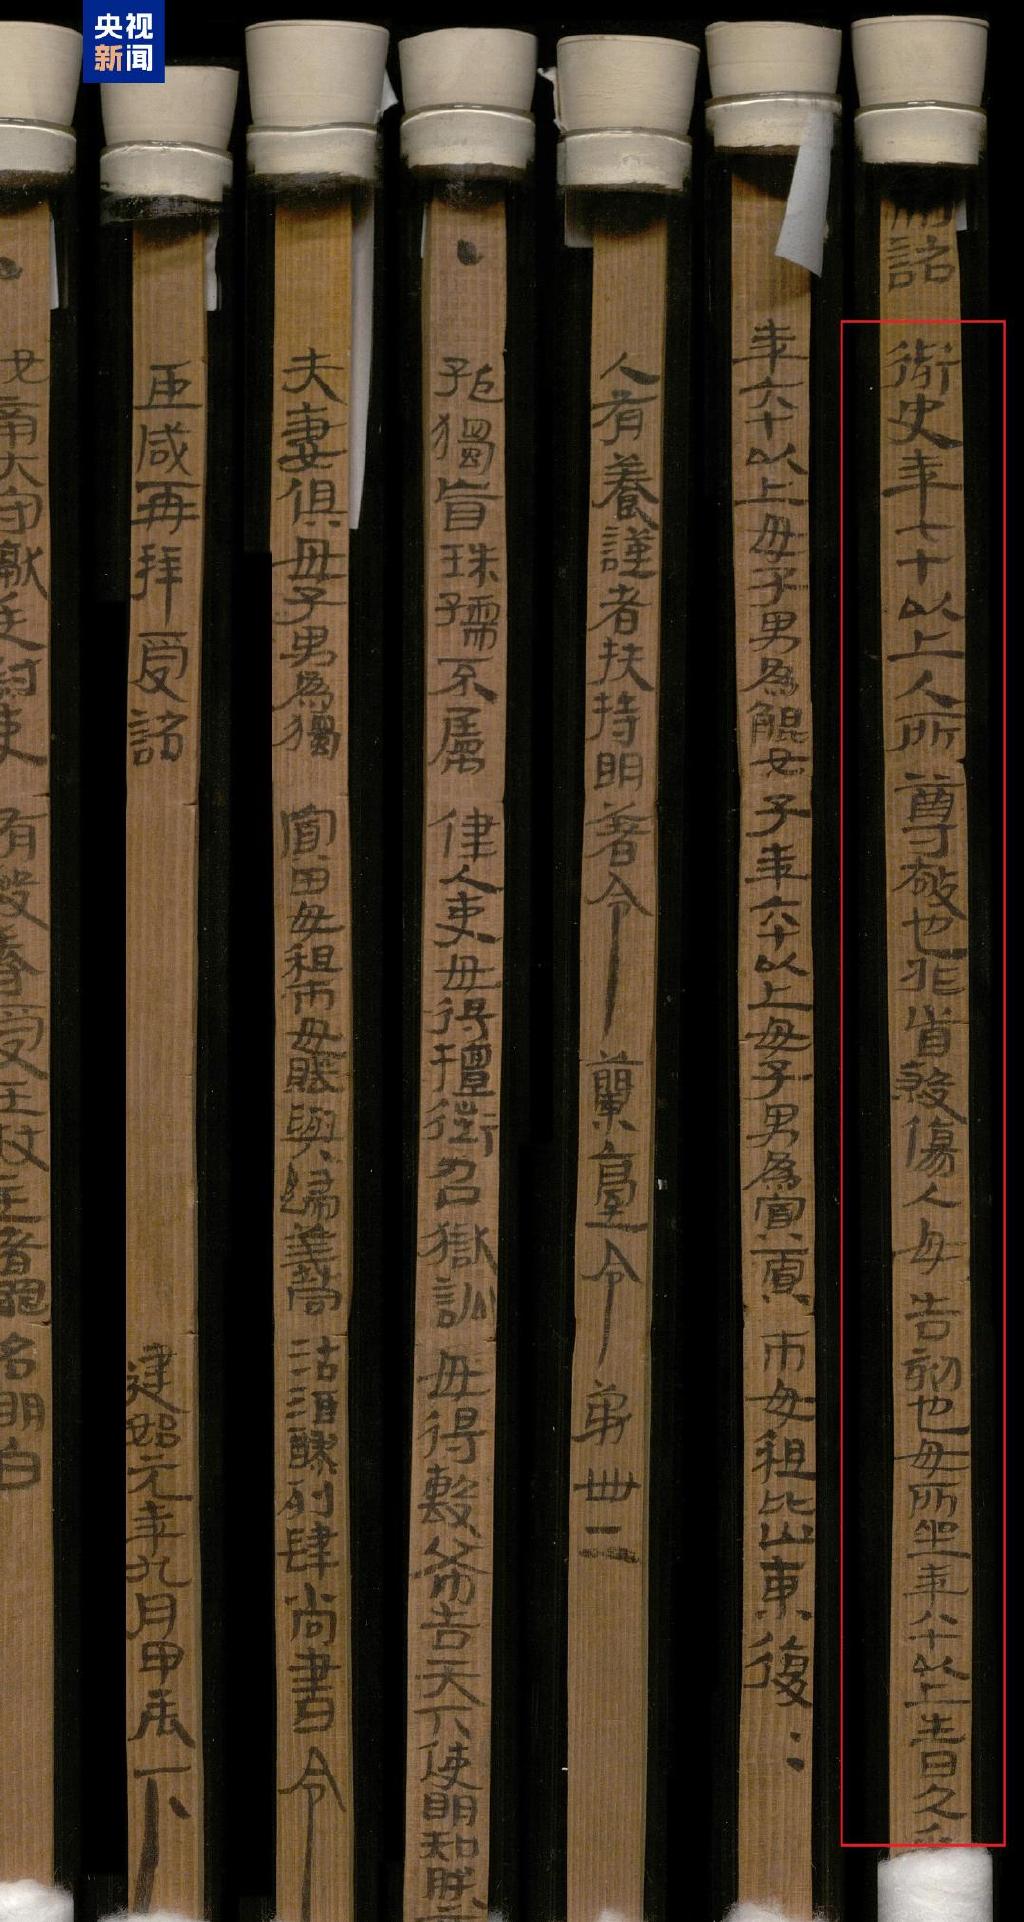 央视
新闻
制詔御史年七十以上人所尊敬也非首殺傷人毋告劾也毋所坐年八十以上生日久乎
年六十以上毋子男為鯤女子年六十以上毋子男為寡賈市毋租比山東復
人有養謹者扶持明著令蘭臺令第卌二
孤獨盲珠孺不屬律人吏毋得擅徵召獄訟毋得毄布告天下使明知朕
夫妻俱毋子男為獨寡田毋租市毋賦與歸義同沽酒醪列肆尚書令
臣咸再拜受詔建始元年九月甲辰下
南大守讞廷尉吏有毆辱受王杖主者罪名明白